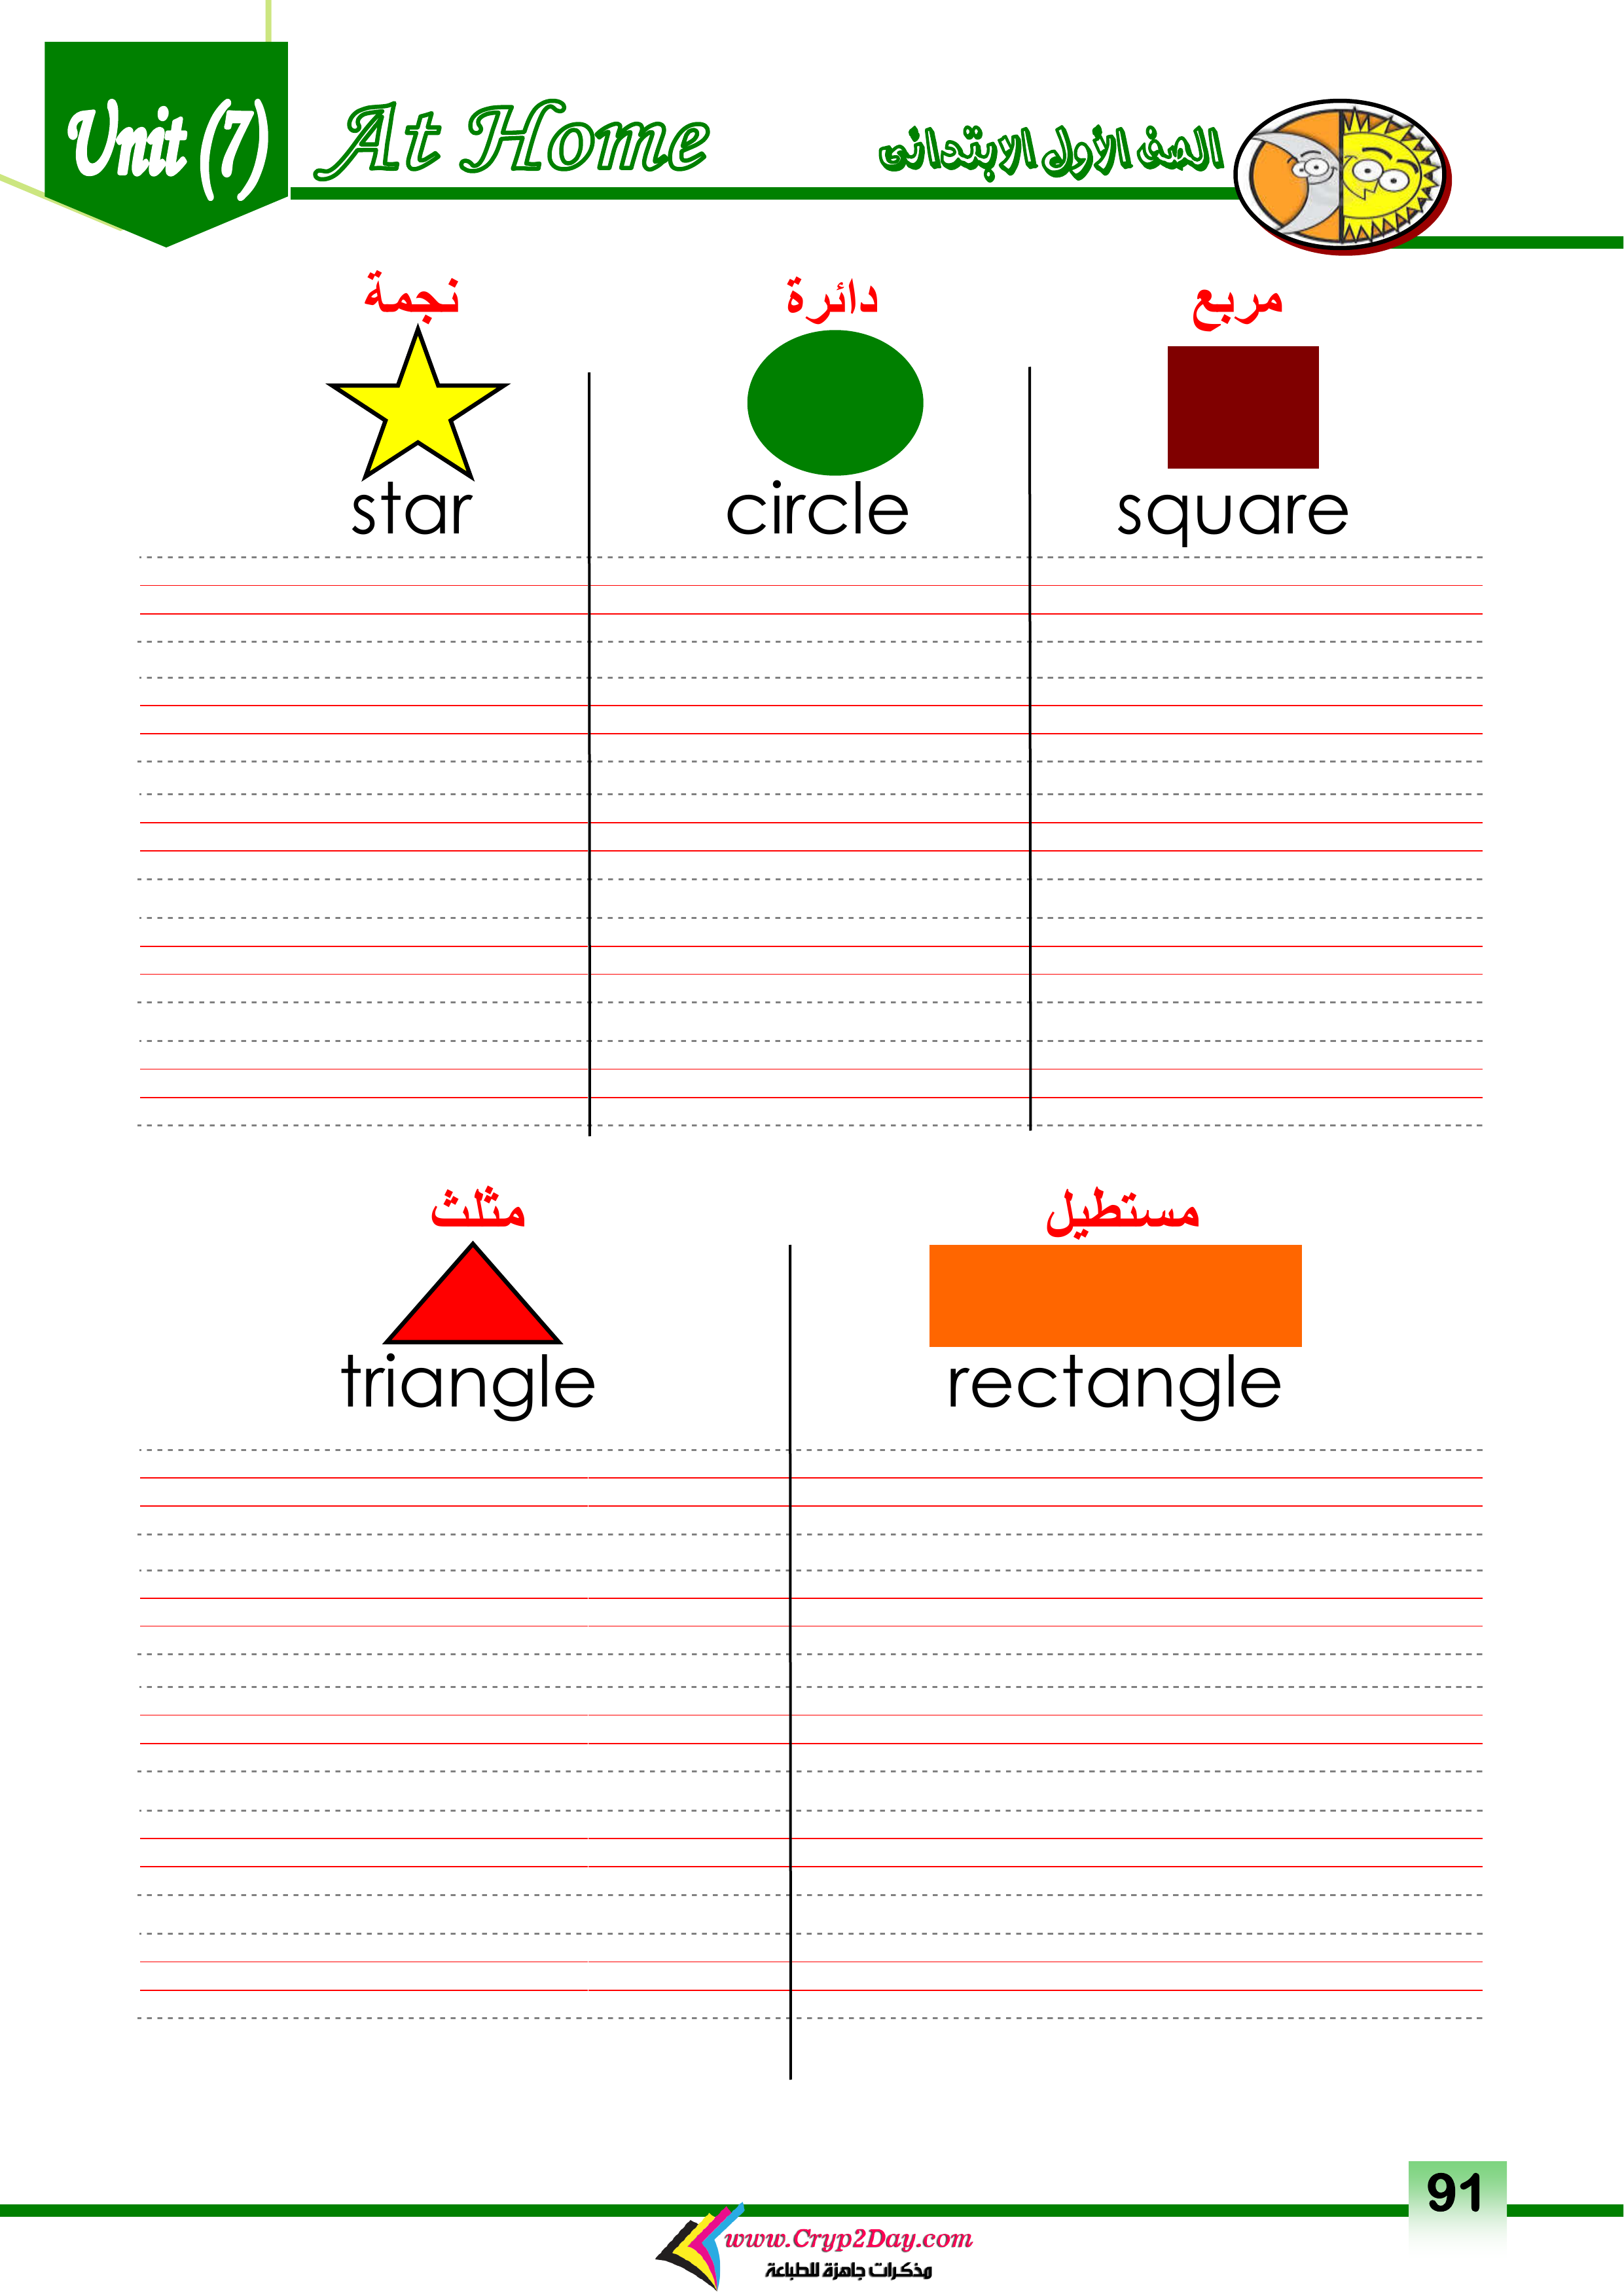 Unit (7) At Home الصف الأول الابتدائى
نجمة دائرة مربع
star circle square
مثلث مستطيل
triangle rectangle
91
www.Cryp2Day.com
مذكرات جاهزة للطباعة